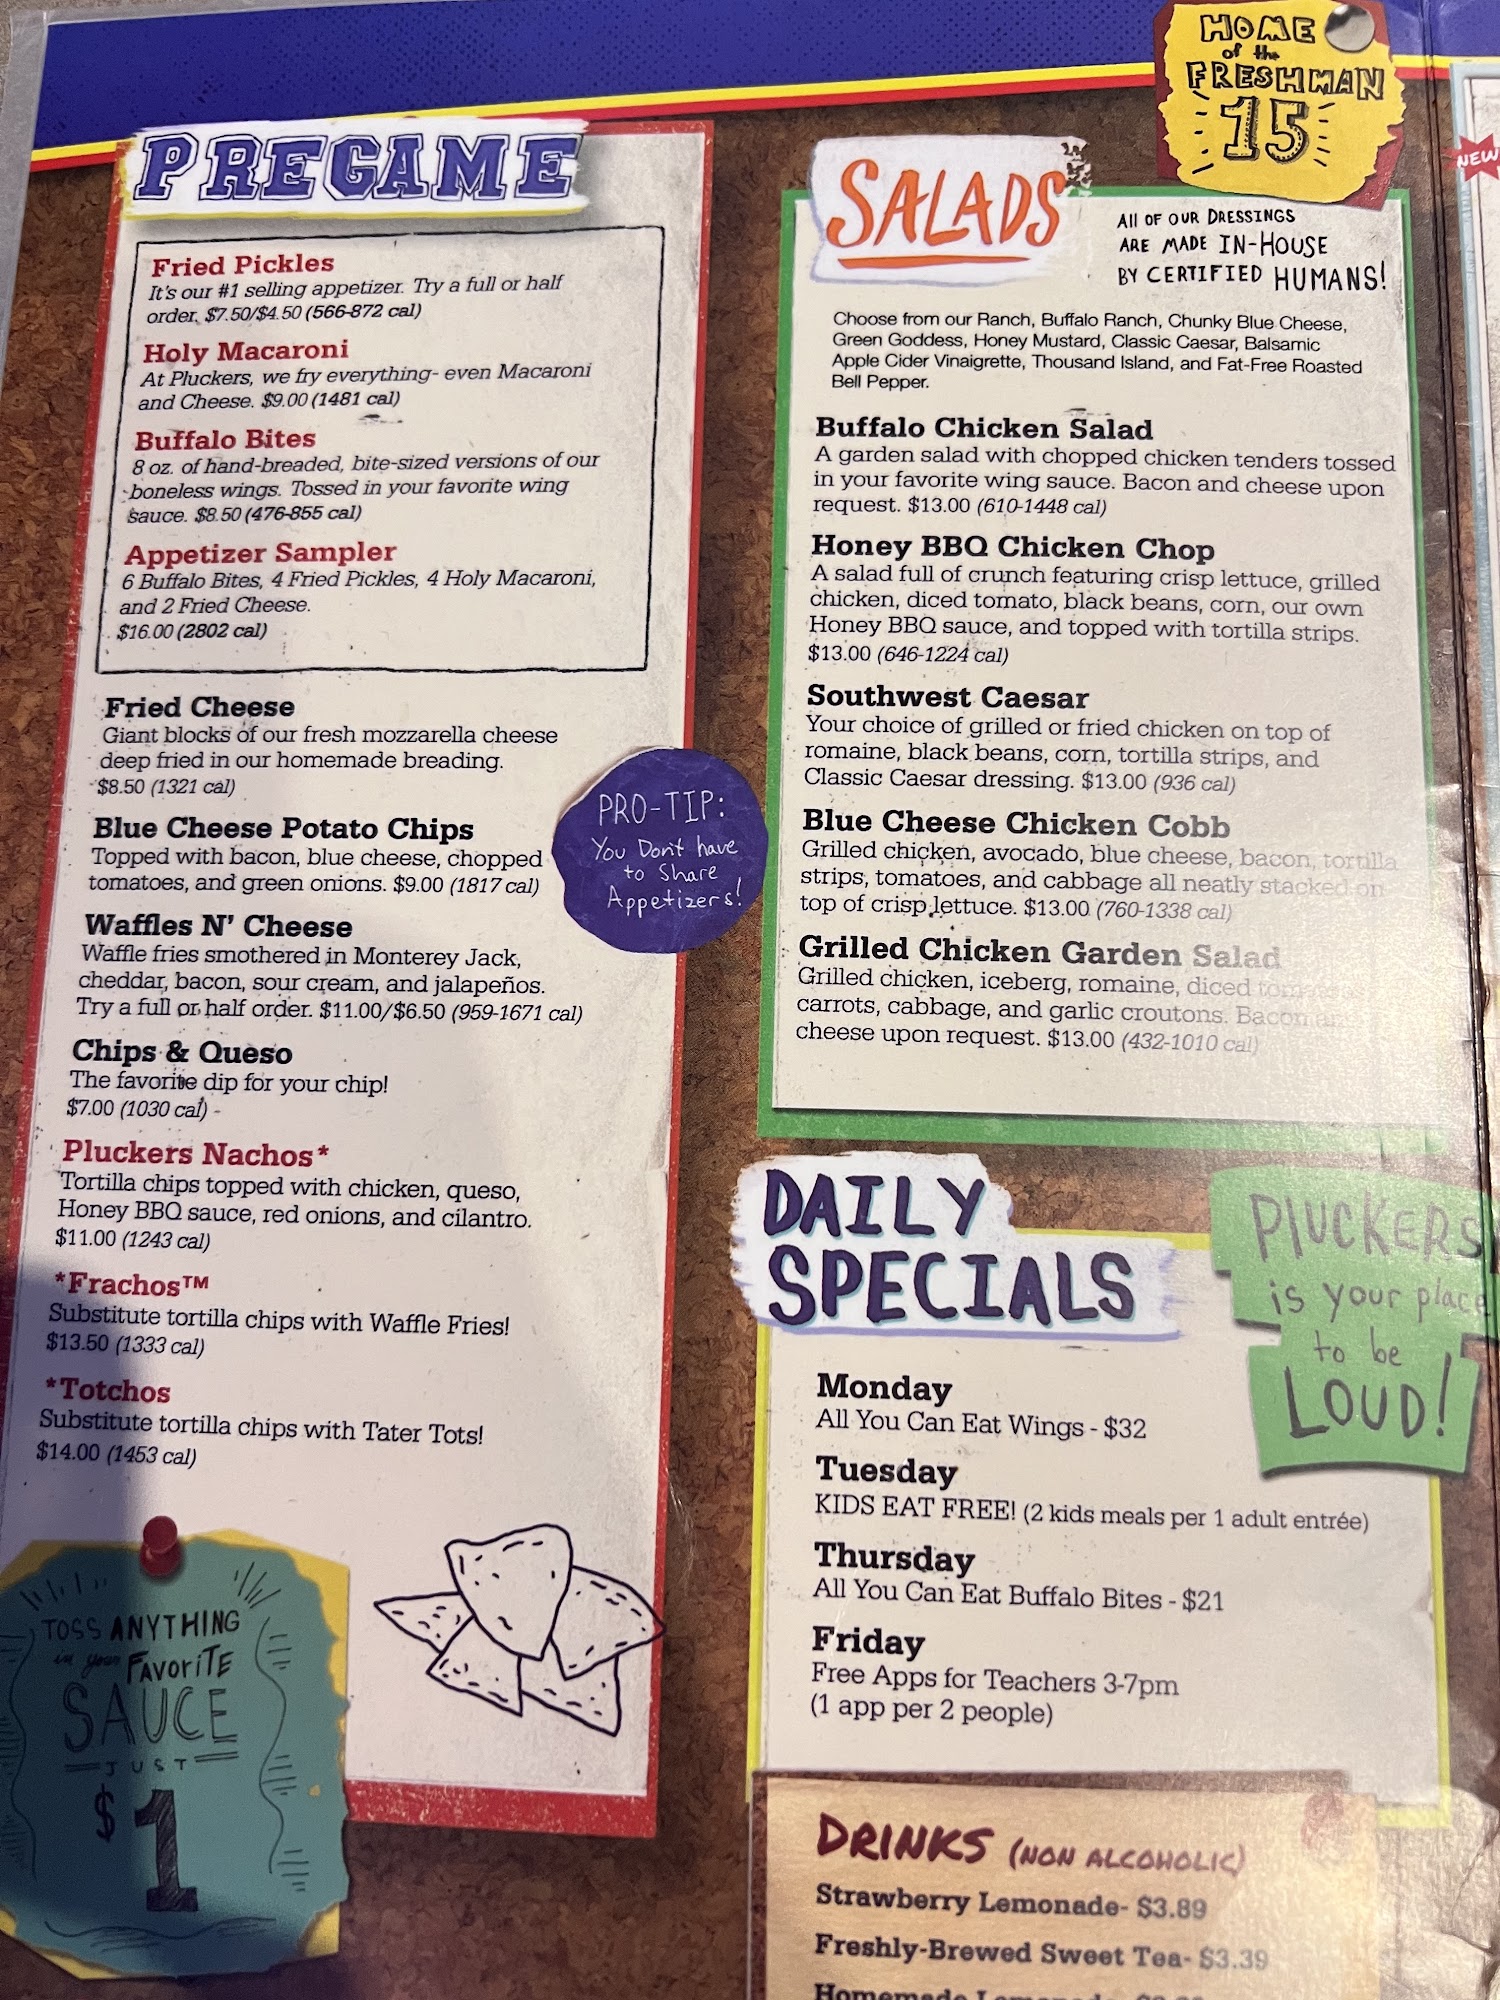 PREGAME
Fried Pickles
It's our #1 selling appetizer. Try a full or half
order. $7.50/$4.50 (566-872 cal)
Holy Macaroni
At Pluckers, we fry everything- even Macaroni
and Cheese. $9.00 (1481 cal)
Buffalo Bites
8 oz. of hand-breaded, bite-sized versions of our
boneless wings. Tossed in your favorite wing
sauce. $8.50 (476-855 cal)
Appetizer Sampler
6 Buffalo Bites, 4 Fried Pickles, 4 Holy Macaroni,
and 2 Fried Cheese.
$16.00 (2802 cal)
Fried Cheese
Giant blocks of our fresh mozzarella cheese
deep fried in our homemade breading.
$8.50 (1321 cal)
Blue Cheese Potato Chips
Topped with bacon, blue cheese, chopped
tomatoes, and green onions. $9.00 (1817 cal)
Waffles N' Cheese
Waffle fries smothered in Monterey Jack,
cheddar, bacon, sour cream, and jalapeños.
Try a full or half order. $11.00/$6.50 (959-1671 cal)
Chips & Queso
The favorite dip for your chip!
$7.00 (1030 cal)
Pluckers Nachos*
Tortilla chips topped with chicken, queso,
Honey BBQ sauce, red onions, and cilantro.
$11.00 (1243 cal)
*Frachos™
Substitute tortilla chips with Waffle Fries!
$13.50 (1333 cal)
*Totchos
Substitute tortilla chips with Tater Tots!
$14.00 (1453 cal)
TOSS ANYTHING
in your FAVORITE
SAUCE
JUST
$1
PRO-TIP:
You Don't have
to share
Appetizers!
HOME
of the
FRESHMAN
15
NEW
SALADS
All OF OUR DRESSINGS
ARE MADE IN-HOUSE
BY CERTIFIED HUMANS!
Choose from our Ranch, Buffalo Ranch, Chunky Blue Cheese,
Green Goddess, Honey Mustard, Classic Caesar, Balsamic
Apple Cider Vinaigrette, Thousand Island, and Fat-Free Roasted
Bell Pepper.
Buffalo Chicken Salad
A garden salad with chopped chicken tenders tossed
in your favorite wing sauce. Bacon and cheese upon
request. $13.00 (610-1448 cal)
Honey BBQ Chicken Chop
A salad full of crunch featuring crisp lettuce, grilled
chicken, diced tomato, black beans, corn, our own
Honey BBQ sauce, and topped with tortilla strips.
$13.00 (646-1224 cal)
Southwest Caesar
Your choice of grilled or fried chicken on top of
romaine, black beans, corn, tortilla strips, and
Classic Caesar dressing. $13.00 (936 cal)
Blue Cheese Chicken Cobb
Grilled chicken, avocado, blue cheese, bacon, tortilla
strips, tomatoes, and cabbage all neatly stacked on
top of crisp lettuce. $13.00 (760-1338 cal)
Grilled Chicken Garden Salad
Grilled chicken, iceberg, romaine, diced
carrots, cabbage, and garlic croutons. Bacon
cheese upon request. $13.00 (432-1010 cal)
DAILY
SPECIALS
PlUCKERS
is your place
to be
LOUD!
Monday
All You Can Eat Wings - $32
Tuesday
KIDS EAT FREE! (2 kids meals per 1 adult entrée)
Thursday
All You Can Eat Buffalo Bites - $21
Friday
Free Apps for Teachers 3-7pm
(1 app per 2 people)
DRINKS (NON ALCOHOLIC)
Strawberry Lemonade- $3.89
Freshly-Brewed Sweet Tea- $3.39
Homemade